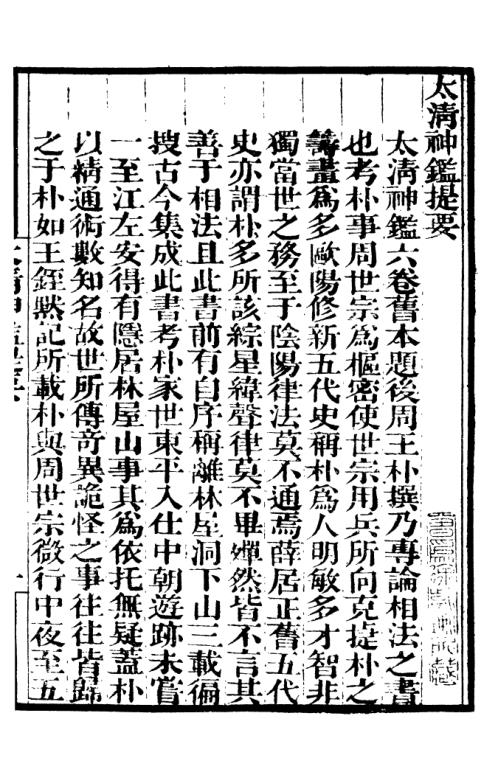 太清神鑑提要
太清神鑑六卷舊本題後周王朴撰乃專論相法之書
也考朴事周世宗爲樞密使世宗用兵所向克捷朴之
籌畫爲多歐陽修新五代史稱朴爲人明敏多才智非
獨當世之務至于陰陽律法莫不通焉薛居正舊五代
史亦謂朴多所該綜星緯聲律莫不畢殫然皆不言其
善于相法且此書前有自序稱離林屋洞下山三載徧
搜古今集成此書考朴家世東平入仕中朝遊跡未嘗
一至江左安得有隱居林屋山事其爲依托無疑蓋朴
以精通術數知名故世所傳奇異詭怪之事往往皆歸
之于朴如王銍默記所載朴與周世宗微行中夜至五